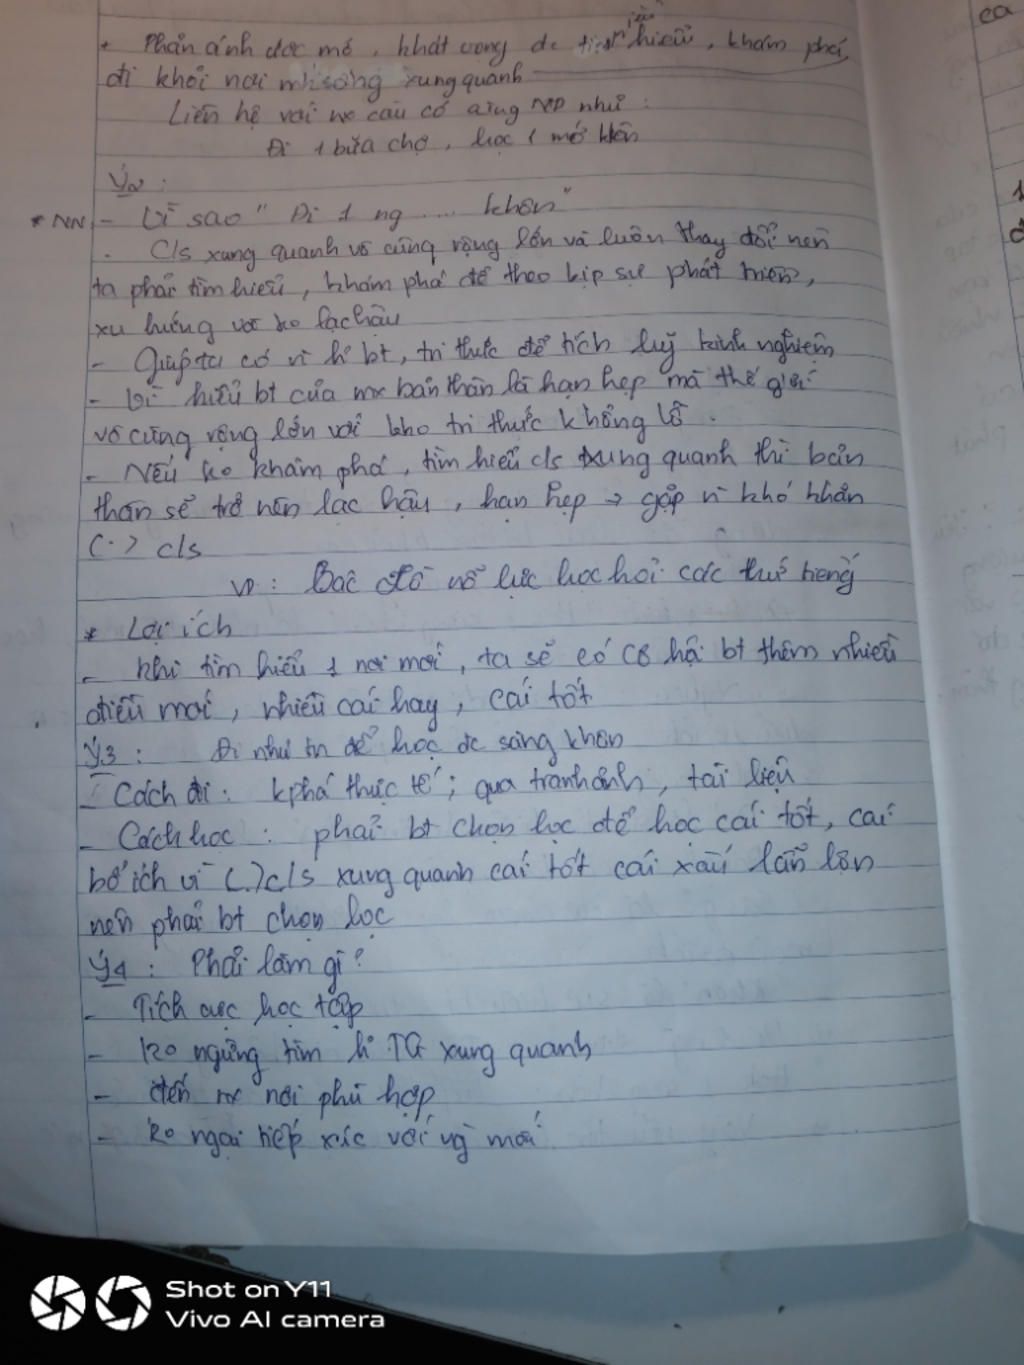 + Phản ánh ước mơ, khát vọng đc tìm hiểu, khám phá,
đi khỏi nơi mh sống xung quanh
Liên hệ với n~ câu có cùng ND như :
Đi 1 bữa chợ, học 1 mớ khôn
Ý2 :
* NN - Vì sao " Đi 1 ng .... khôn"
. C/s xung quanh vô cùng rộng lớn và luôn thay đổi nên
ta phải tìm hiểu, khám phá để theo kịp sự phát triển,
xu hướng và ko lạc hậu
- Giúp ta có bt, tri thức để tích luỹ kinh nghiệm
- Vì hiểu bt của bản thân là hạn hẹp mà thế giới
vô cùng rộng lớn với kho tri thức khổng lồ.
- Nếu ko khám phá, tìm hiểu c/s xung quanh thì bản
thân sẽ trở nên lạc hậu, hạn hẹp → gặp n` khó khăn
(.) c/s
VD : Bác Hồ nỗ lực học hỏi các thứ tiếng
* Lợi ích
- Khi tìm hiểu 1 nơi mới, ta sẽ có cơ hội bt thêm nhiều
điều mới, nhiều cái hay, cái tốt
Ý3 : Đi như tn để học đc sàng khôn
- Cách đi : kphá thực tế ; qua tranh ảnh, tài liệu
- Cách học : phải bt chọn lọc để học cái tốt, cái
bổ ích vì (.) c/s xung quanh cái tốt cái xấu lẫn lộn
nên phải bt chọn lọc
Ý4 : Phải làm gì ?
- Tích cực học tập
- Ko ngừng tìm h~ TG xung quanh
- đến nơi phù hợp
- ko ngại tiếp xúc với mới
Shot on Y11
Vivo AI camera